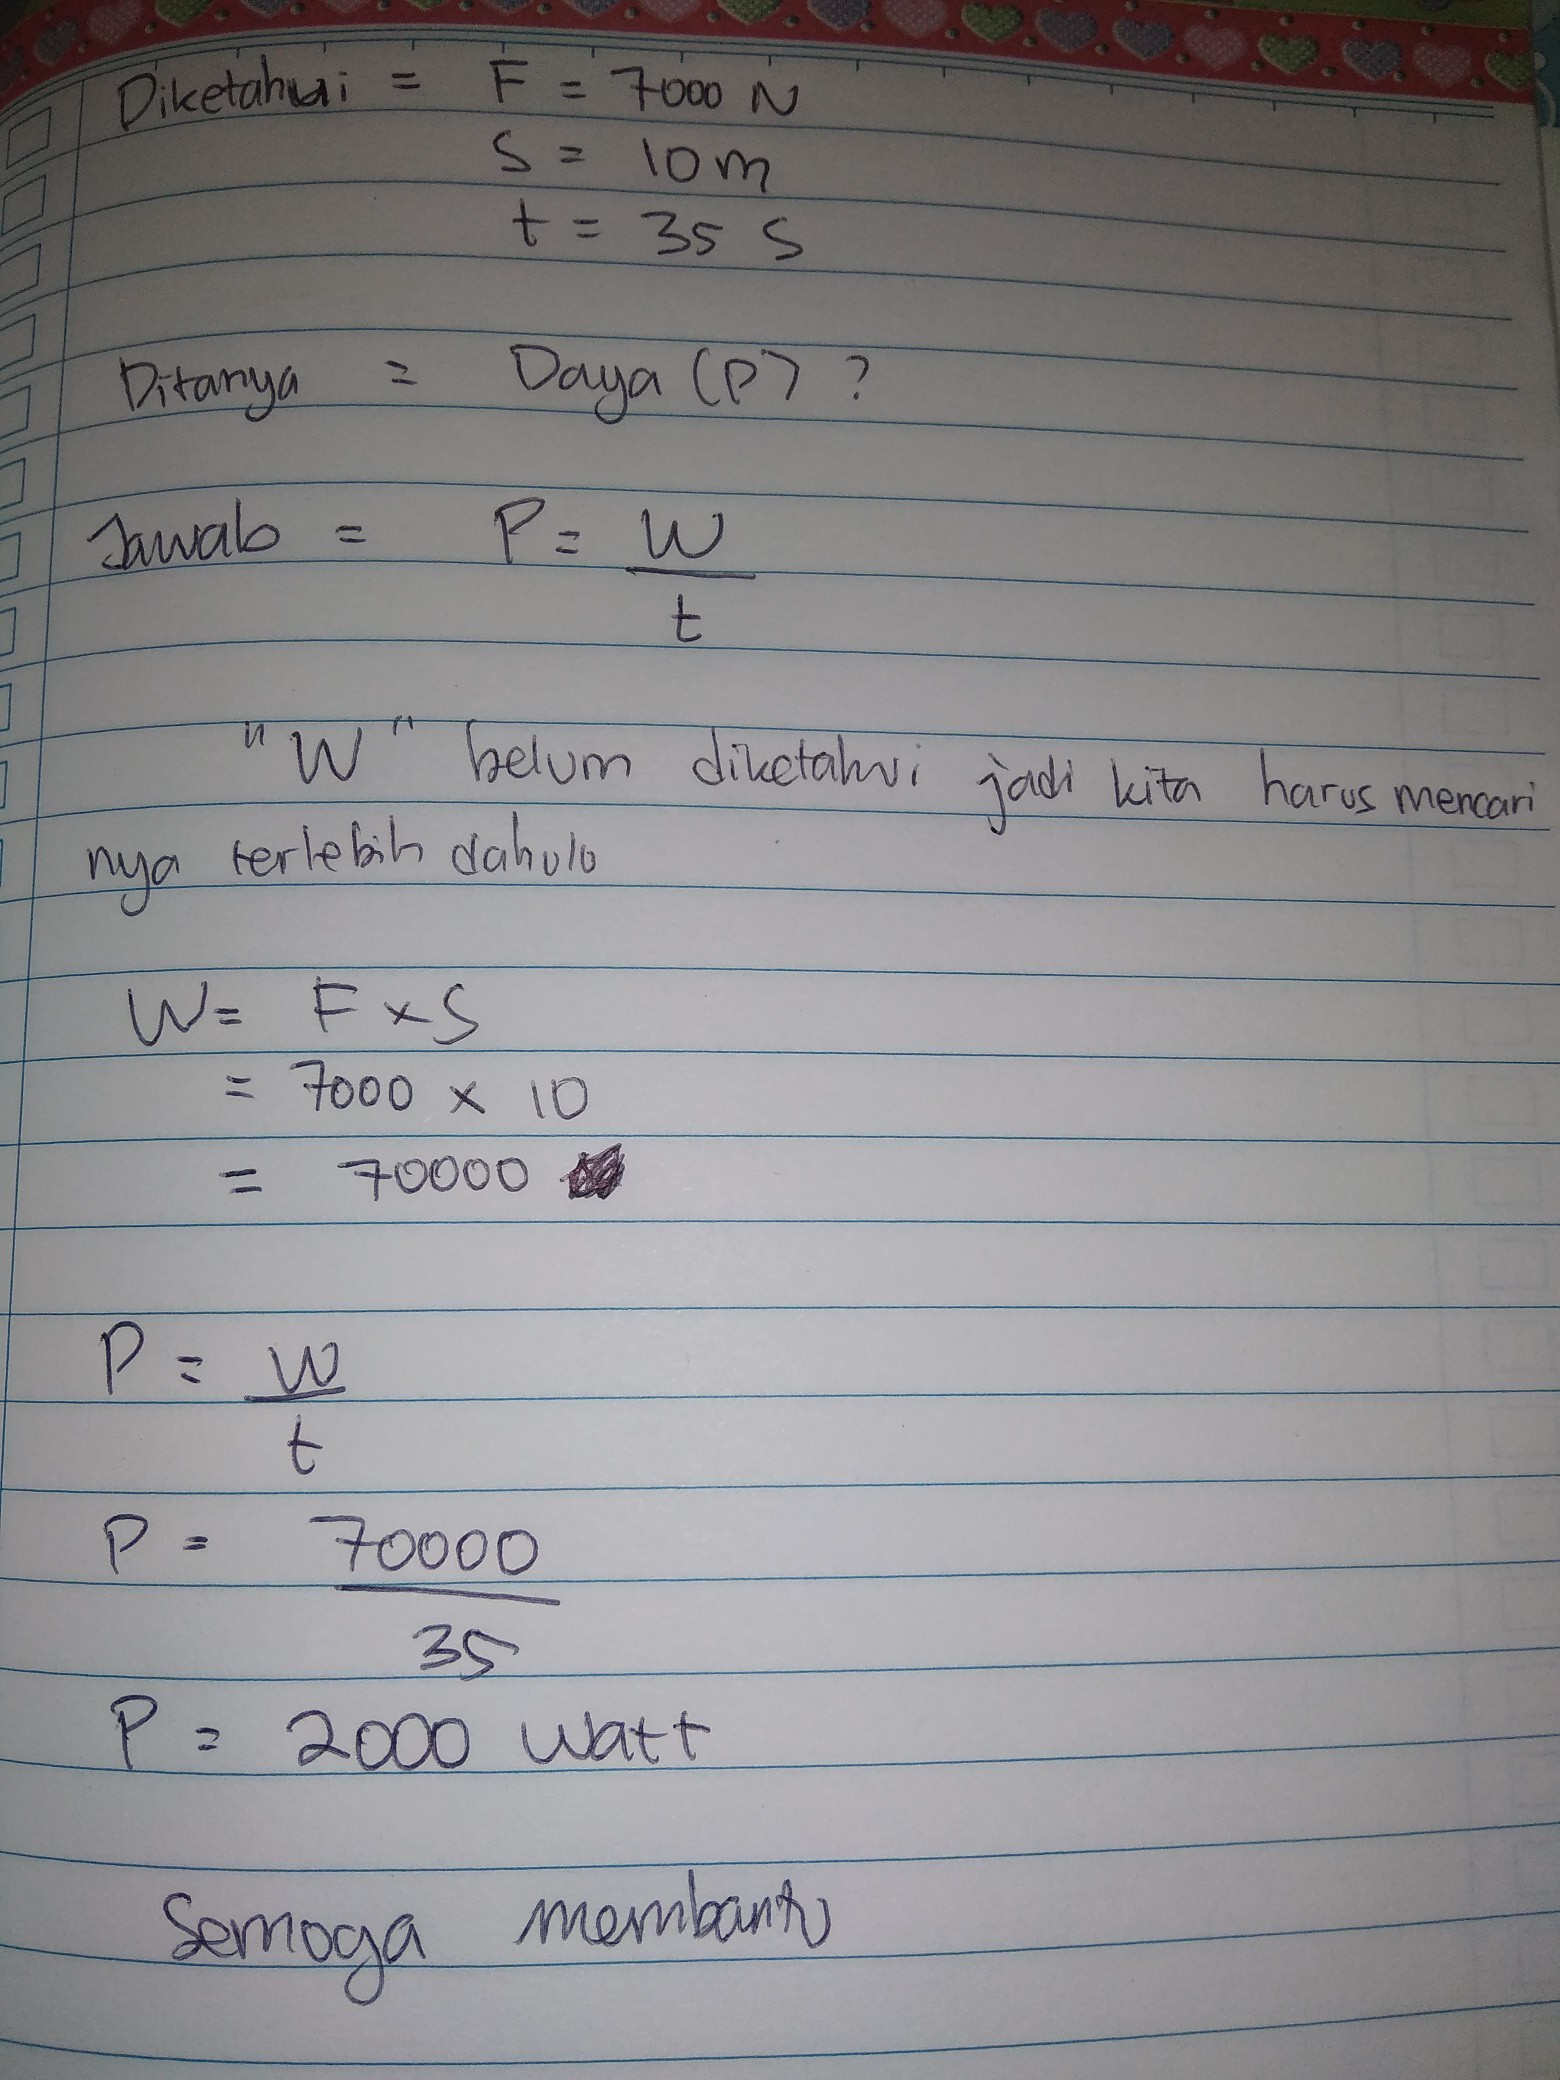 Diketahui = F = 7000 N
S = 10 m
t = 35 S
Ditanya = Daya (P) ?
Jawab = P = W
t
"W" belum diketahui jadi kita harus mencari
nya terlebih dahulu
W = F x S
= 7000 x 10
= 70000
P = W
t
P = 70000
35
P = 2000 watt
Semoga membantu